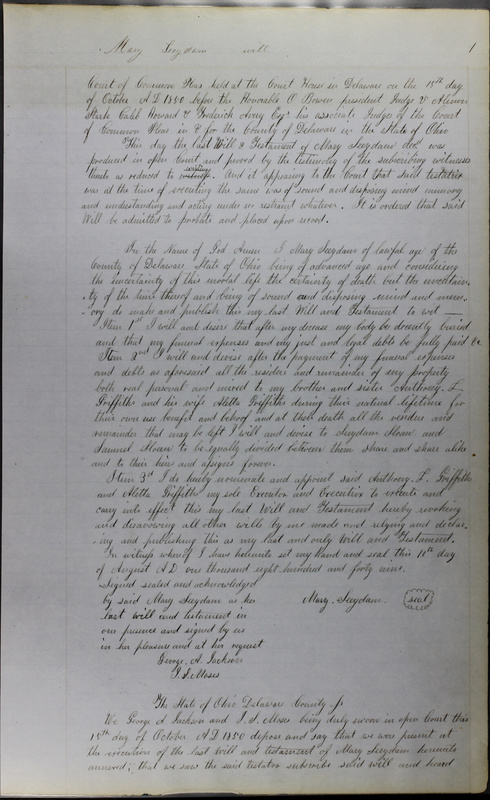 Mary Suydam will 1
Court of Common Pleas held at the Court House in Delaware on the 15th day
of October A D 1850 before the Honorable O Bowen president Judge &
Caleb Howard & Frederick Avery Esqs his associate Judges of the Court
of Common Pleas in & for the County of Delaware in the State of Ohio
This day the last Will & Testament of Mary Suydam decd was
produced in open Court and proved by the testimony of the subscribing witnesses
thereto as reduced to writing. And it appearing to the Court that said testatrix
was at the time of executing the same was of sound and disposing mind memory
and understanding and acting under no restraint whatever. It is ordered that said
Will be admitted to probate and placed upon record.
In the Name of God Amen I Mary Suydam of lawful age of the
County of Delaware State of Ohio being of advanced age and considering
the uncertainty of this mortal life the certainty of death but the uncertain-
-ty of the time thereof and being of sound and disposing mind and mem-
-ory do make and publish this my last Will and Testament to wit —
Item 1st I will and desire that after my decease my body be decently buried
and that my funeral expenses and my just and legal debts be fully paid &c
Item 2nd I will and devise after the payment of my funeral expenses
and debts as aforesaid all the residue and remainder of my property
both real personal and mixed to my brother and sister Anthony L
Griffiths and his wife Aletta Griffiths during their natural lifetime for
their own use benefit and behoof and at their death all the residue and
remainder that may be left I will and devise to Suydam Sloan and
Samuel Sloan to be equally divided between them share and share alike
and to their heirs and assigns forever.
Item 3d I do hereby nominate and appoint said Anthony L. Griffiths
and Aletta Griffiths my sole Executor and Executrix to execute and
carry into effect this my last Will and Testament hereby revoking
and disavowing all other wills by me made and relying and declar-
-ing and publishing this as my last and only Will and Testament.
In witness whereof I have hereunto set my Hand and seal this 11th day
of August A D one thousand eight hundred and forty nine.
Signed sealed and acknowledged
by said Mary Suydam as her Mary Suydam seal
last will and testament in
our presence and signed by us
in her pleasure and at her request
George A. Jackson
I. S. Moses
The State of Ohio Delaware County ss
We George A Jackson and I. S. Moses being duly sworn in open Court this
15th day of October A D 1850 depose and say that we were present at
the execution of the last will and testament of Mary Suydam hereunto
annexed; that we saw the said testator subscribe said will and heard